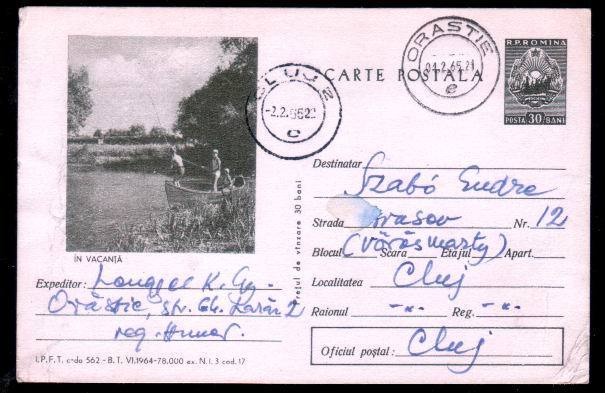 CARTE POSTALĂ
R.P. ROMINA
POSTA 30 BANI
ORASTIE
04.2.65.21
e
CLUJ 2
-2.2.65 22
c
ÎN VACANȚĂ
Prețul de vînzare 30 bani
Destinatar Szabó Endre
Strada Brasov Nr. 12
Blocul (Vörösmarty) Scara Etajul Apart.
Localitatea Cluj
Raionul -"- Reg. -"-
Oficiul poștal: Cluj
Expeditor: K. Gy.
Orăștie, str. Gh. Lazăr 2
reg. Huned.
I.P.F.T. c-da 562 - B.T. VI.1964-78.000 ex. N.I. 3 cod. 17